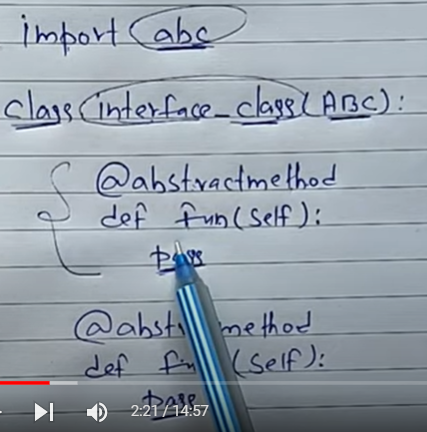 import abc
class interface_class(ABC):
@abstractmethod
def fun(self):
pass
@abst method
def f (self):
pass
2:21 / 14:57